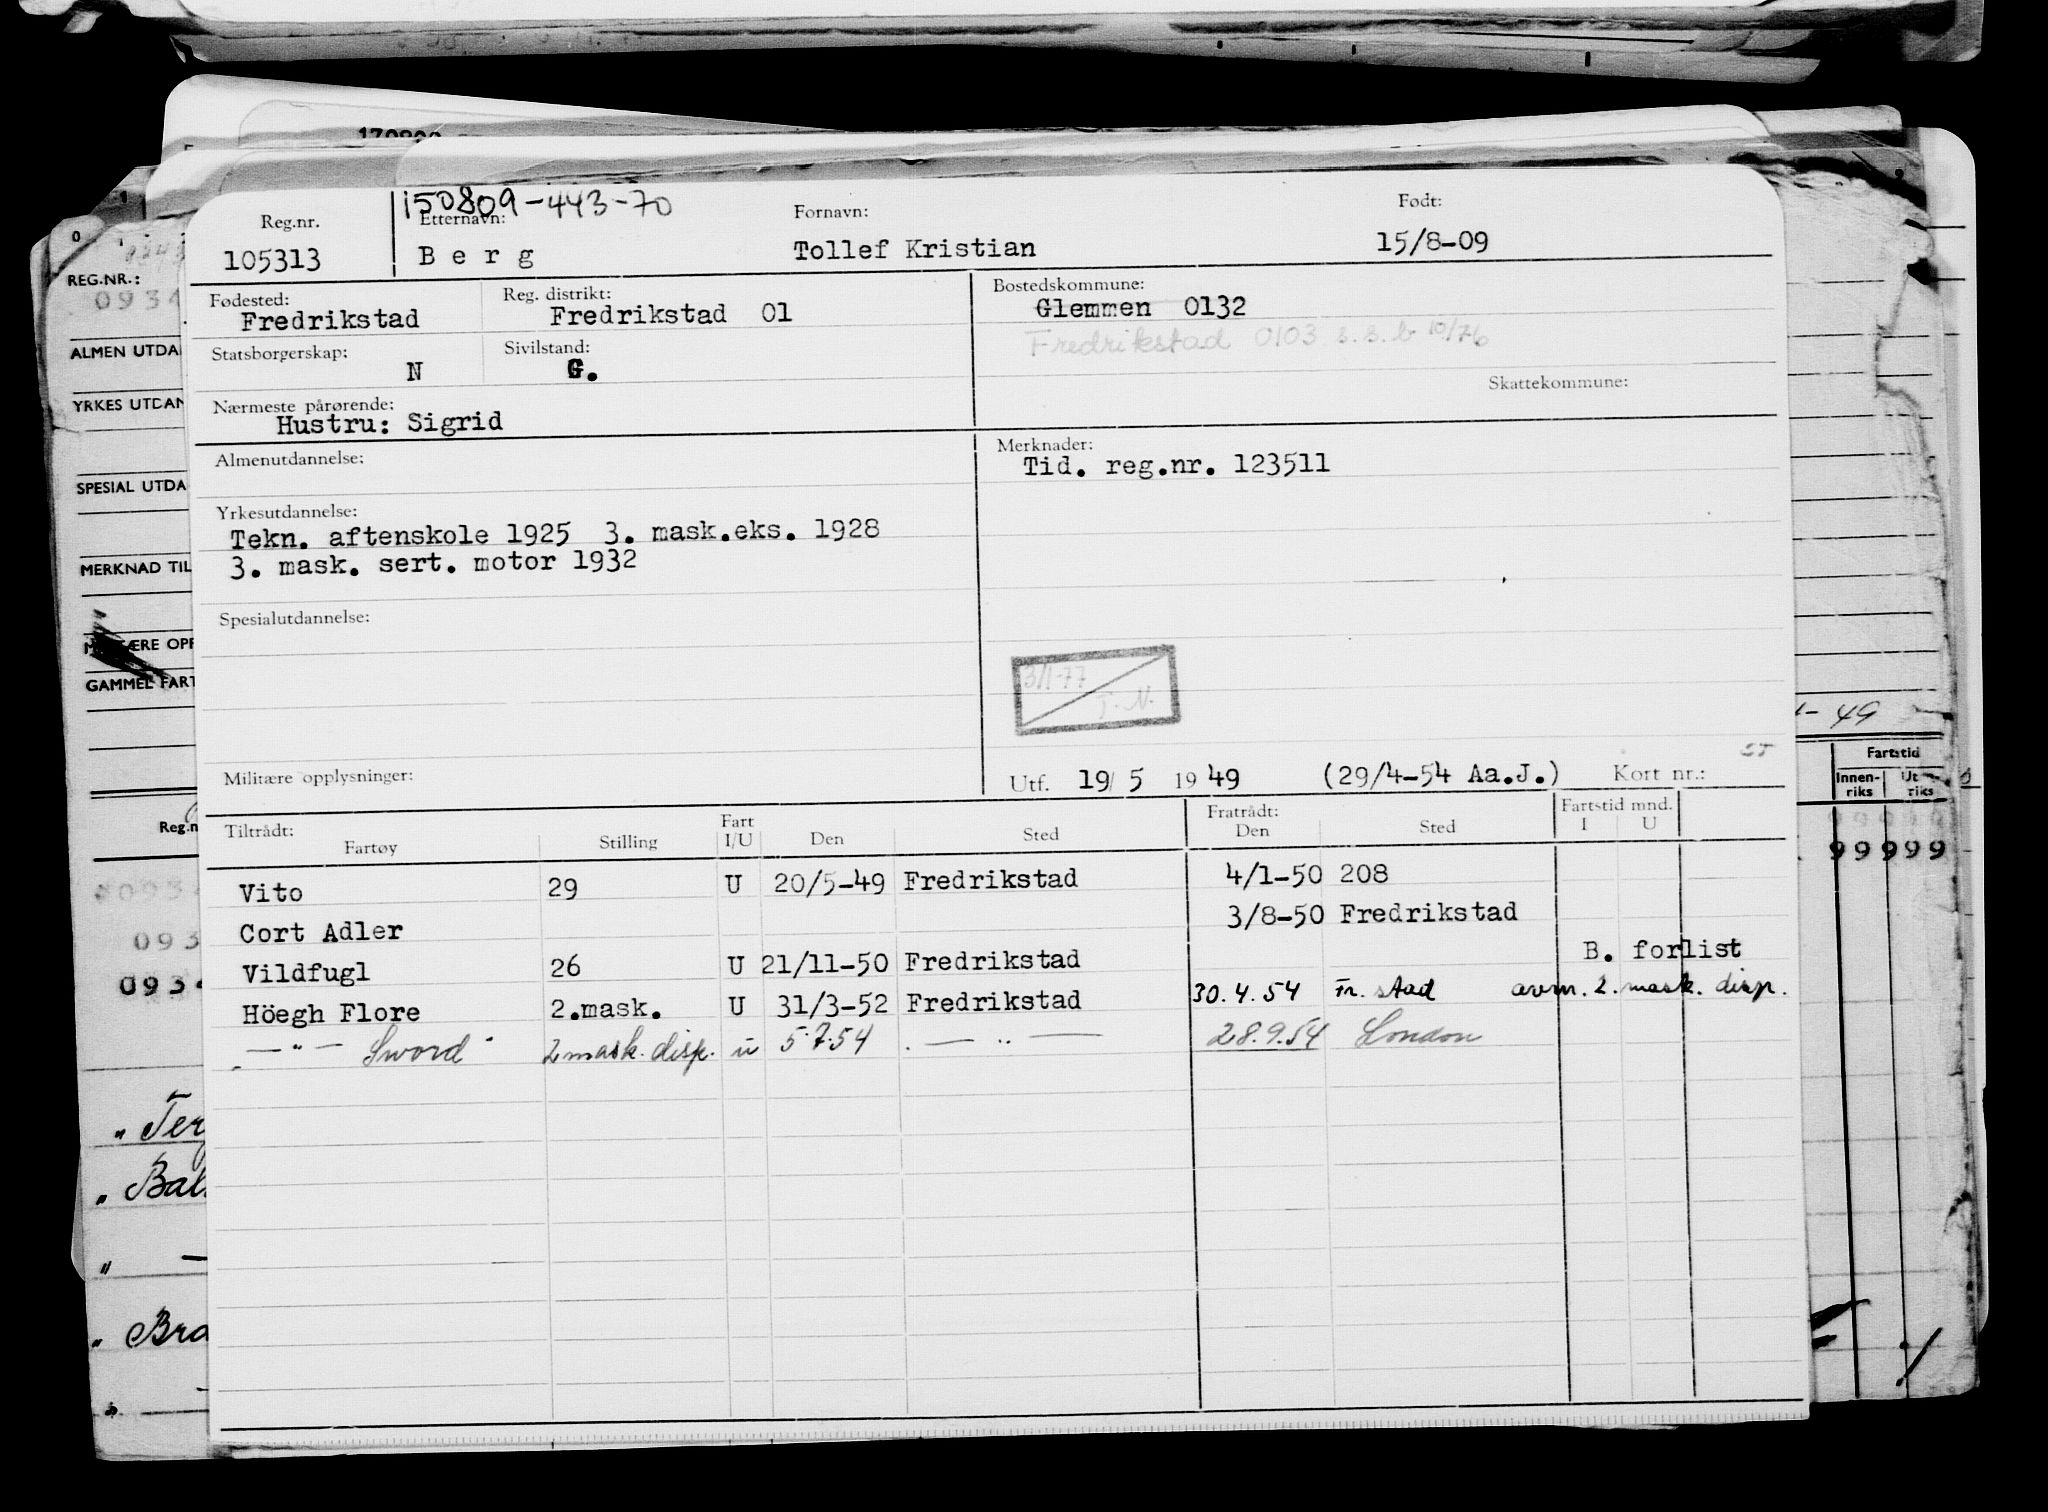 170809
150809-443-70
Reg.nr. Etternavn: Fornavn: Født:
105313 Berg Tollef Kristian 15/8-09
Fødested: Reg. distrikt: Bostedskommune:
Fredrikstad Fredrikstad 01 Glemmen 0132
Fredrikstad 0103 s.s.b 10/76
Statsborgerskap: Sivilstand:
N G.
Skattekommune:
Nærmeste pårørende:
Hustru: Sigrid
Almenutdannelse: Merknader:
Tid. reg.nr. 123511
Yrkesutdannelse:
Tekn. aftenskole 1925 3. mask.eks. 1928
3. mask. sert. motor 1932
Spesialutdannelse:
3/1-77
T.N.
Militære opplysninger: Utf. 19/ 5 1949 (29/4-54 Aa.J.) Kort nr.:
Tiltrådt: Fratrådt: Fartstid mnd.
Fartøy Stilling Fart I/U Den Sted Den Sted I U
Vito 29 U 20/5-49 Fredrikstad 4/1-50 208
Cort Adler 3/8-50 Fredrikstad
Vildfugl 26 U 21/11-50 Fredrikstad B. forlist
Höegh Flore 2.mask. U 31/3-52 Fredrikstad 30.4.54 Fr.stad avm. 2. mask. disp.
— " — Sword 2 mask. disp. u 5.7.54 — " — 28.9.54 London
REG.NR.:
0934
ALMEN UTDA
YRKES UTDAN
SPESIAL UTDA
MERKNAD TIL
ÆRE OPP
GAMMEL FART
Reg.n
093
0934
" Ter
" Bal
" —
" Bra
49
Fartstid
Innen-riks Ut riks
99999